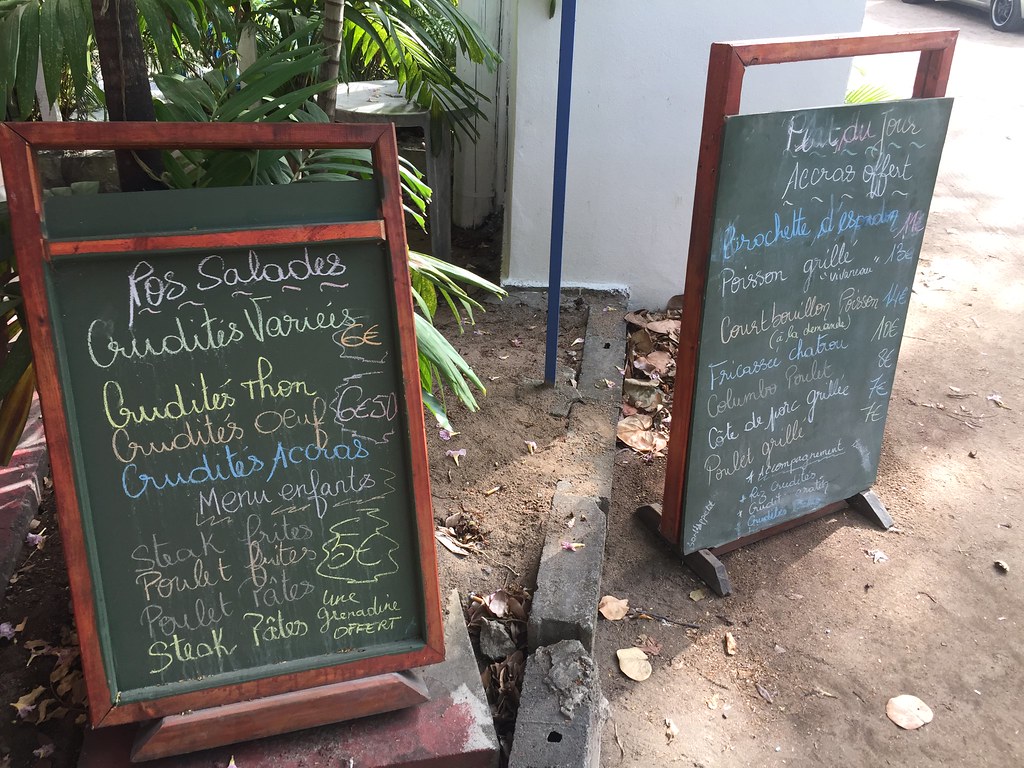 Nos Salades
Crudités Variées
6€
Crudités Thon
Crudités Oeuf 6€50
Crudités Accras
Menu enfants
Steak frites
Poulet frites 5€
Poulet Pâtes
Steak Pâtes
une
grenadine
OFFERT
Plat du Jour
Accras offert
Brochette d'espadon 14€
Poisson grillé "vivaneau" 13€
Court bouillon Poisson 14€
(à la demande)
Fricassée chatrou 10€
Columbo Poulet 8€
Côte de porc grillée 7€
Poulet grillé 7€
* Accompagnement
* Riz Crudités
Crudités
Bon Appétit